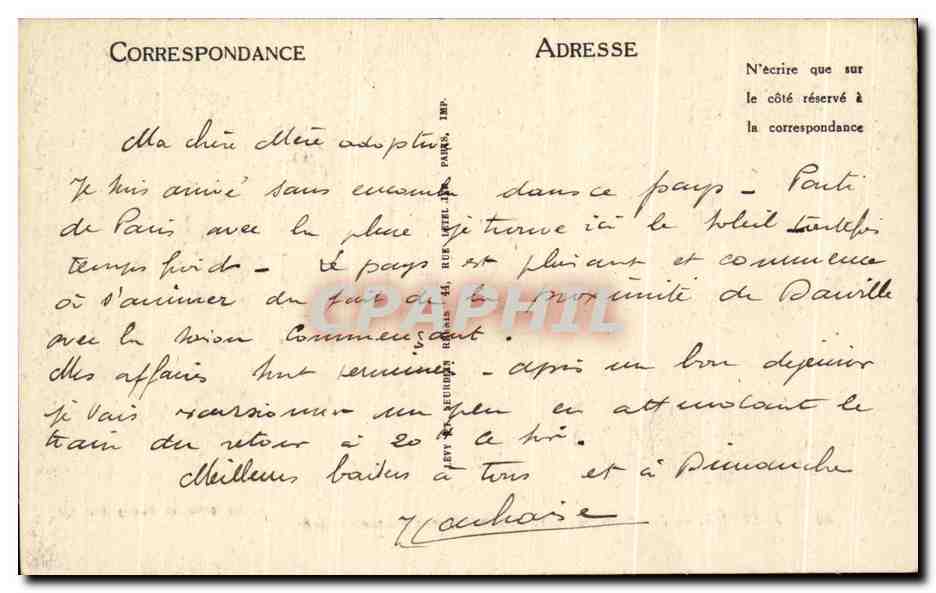 CORRESPONDANCE
ADRESSE
N'écrire que sur
le côté réservé à
la correspondance
Ma chère Mère adoptive
Je suis arrivé sans encombre dans ce pays - Parti
de Paris avec la pluie je trouve ici le soleil toutefois
temps froid - Le pays est plaisant et commence
à s'animer du fait de la proximité de Dauville
avec la saison commençant.
Mes affaires sont terminées - après un bon déjeuner
je vais excursionner un peu en attendant le
train du retour à 20h ce soir.
Meilleurs baisers à tous et à Dimanche
LEVY ET NEURDEIN REUNIS 44, RUE LETELLIER, PARIS, IMP.
CPAPHIL